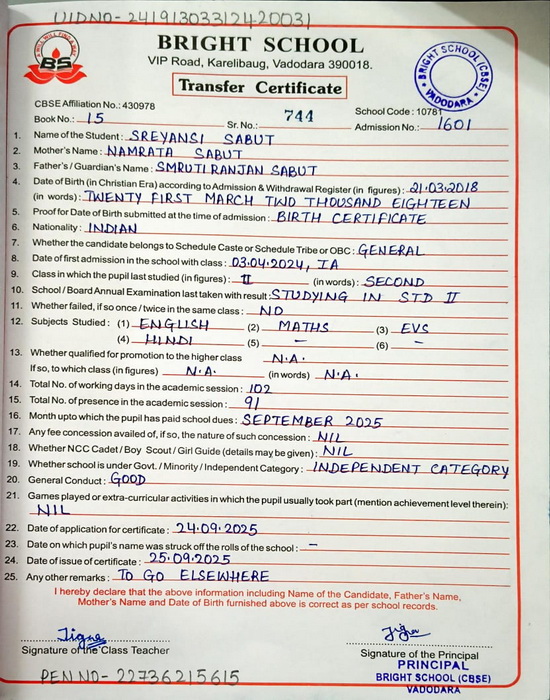 UIDNO- 24191303312420031
BRIGHT SCHOOL
VIP Road, Karelibaug, Vadodara 390018.
BS
BRIGHT SCHOOL (CBSE)
VADODARA
Transfer Certificate
CBSE Affiliation No.: 430978
School Code : 10781
Book No.: 15 Sr. No.: 744 Admission No.: 1601
1. Name of the Student : SREYANSI SABUT
2. Mother's Name : NAMRATA SABUT
3. Father's / Guardian's Name : SMRUTI RANJAN SABUT
4. Date of Birth (in Christian Era) according to Admission & Withdrawal Register (in figures) : 21.03.2018
(in words) : TWENTY FIRST MARCH TWO THOUSAND EIGHTEEN
5. Proof for Date of Birth submitted at the time of admission : BIRTH CERTIFICATE
6. Nationality : INDIAN
7. Whether the candidate belongs to Schedule Caste or Schedule Tribe or OBC : GENERAL
8. Date of first admission in the school with class : 03.04.2024, IA
9. Class in which the pupil last studied (in figures) : II (in words) : SECOND
10. School / Board Annual Examination last taken with result : STUDYING IN STD II
11. Whether failed, if so once / twice in the same class : NO
12. Subjects Studied : (1) ENGLISH (2) MATHS (3) EVS
(4) HINDI (5) – (6) –
13. Whether qualified for promotion to the higher class N.A.
If so, to which class (in figures) N.A. (in words) N.A.
14. Total No. of working days in the academic session : 102
15. Total No. of presence in the academic session : 91
16. Month upto which the pupil has paid school dues : SEPTEMBER 2025
17. Any fee concession availed of, if so, the nature of such concession : NIL
18. Whether NCC Cadet / Boy Scout / Girl Guide (details may be given) : NIL
19. Whether school is under Govt. / Minority / Independent Category : INDEPENDENT CATEGORY
20. General Conduct : GOOD
21. Games played or extra-curricular activities in which the pupil usually took part (mention achievement level therein):
NIL
22. Date of application for certificate : 24.09.2025
23. Date on which pupil's name was struck off the rolls of the school : –
24. Date of issue of certificate : 25.09.2025
25. Any other remarks : TO GO ELSEWHERE
I hereby declare that the above information including Name of the Candidate, Father's Name,
Mother's Name and Date of Birth furnished above is correct as per school records.
Signature of the Class Teacher
Signature of the Principal
PRINCIPAL
BRIGHT SCHOOL (CBSE)
VADODARA
PEN NO- 22736215615